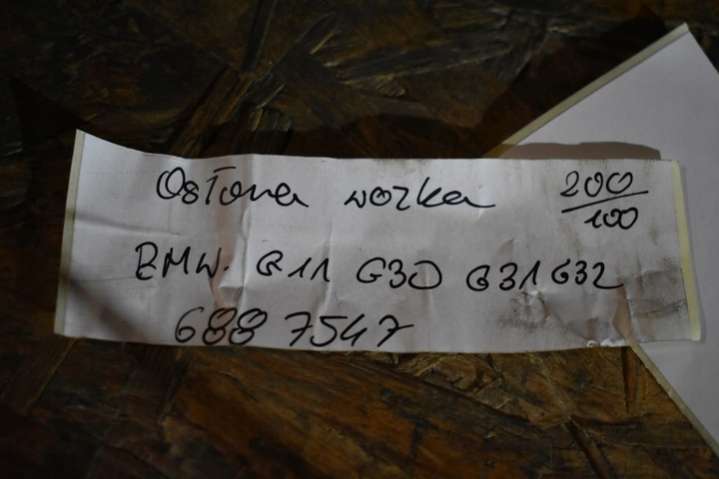 Osłona wozka 200/100
BMW. G11 G30 G31 G32
688 7547